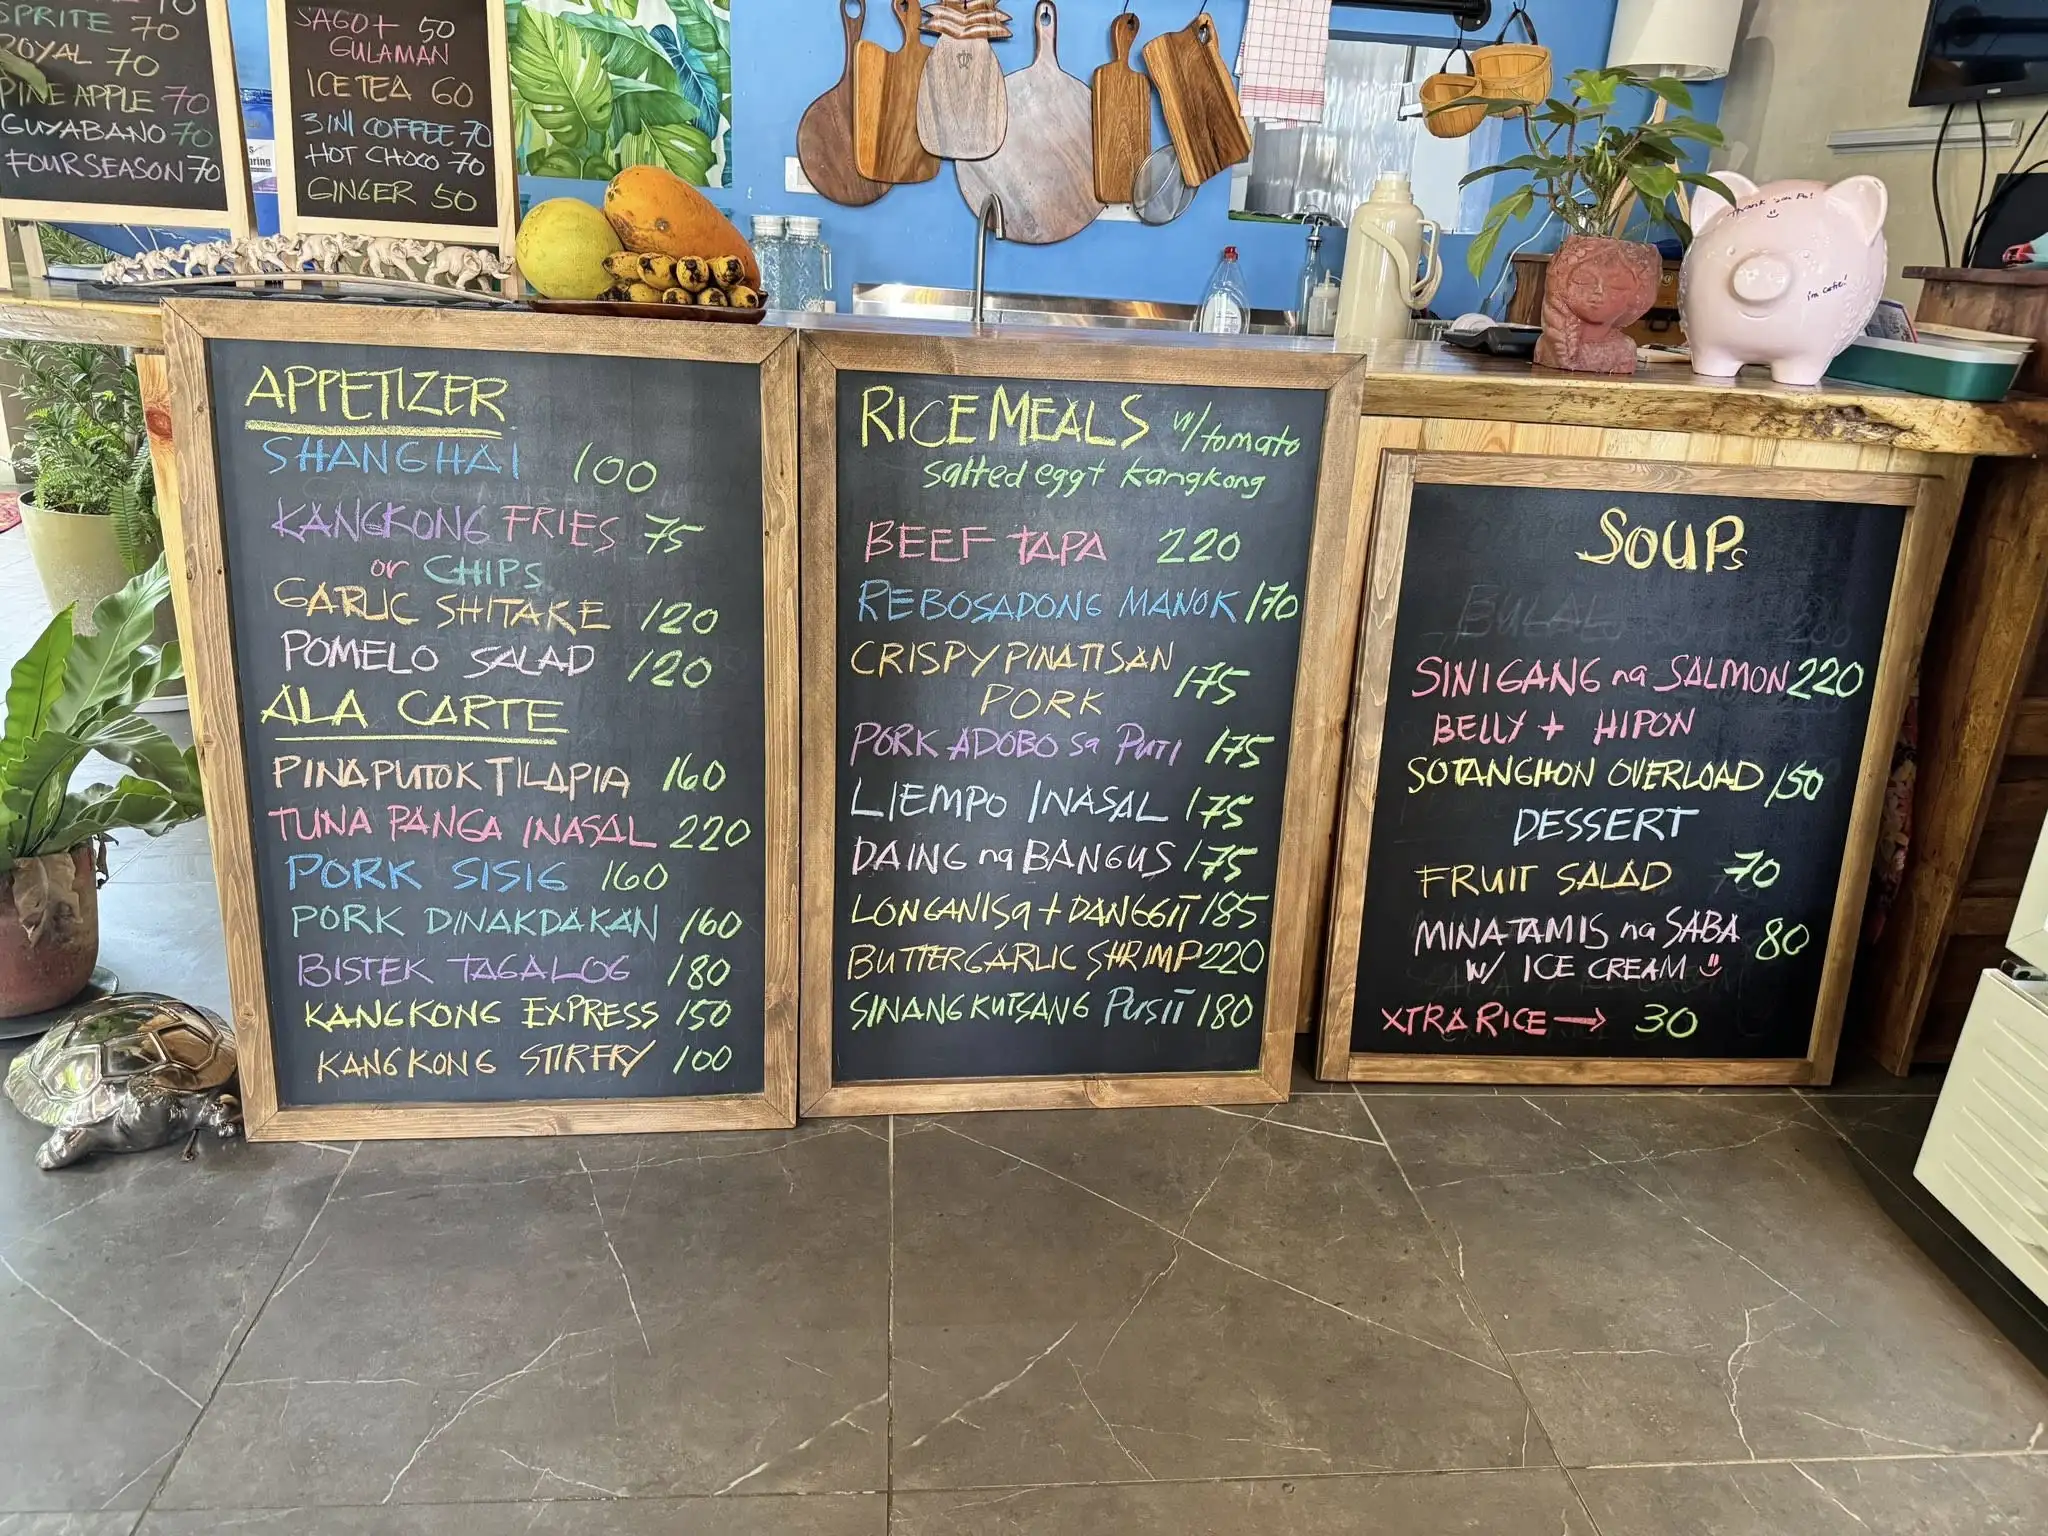 SPRITE 70
ROYAL 70
PINE APPLE 70
GUYABANO 70
FOUR SEASON 70
SAGO+ 50
GULAMAN
ICE TEA 60
3IN1 COFFEE 70
HOT CHOCO 70
GINGER 50
Thank you Po!
i'm cutie!
APPETIZER
SHANGHAI 100
KANGKONG FRIES 75
or CHIPS
GARLIC SHITAKE 120
POMELO SALAD 120
ALA CARTE
PINAPUTOK TILAPIA 160
TUNA PANGA INASAL 220
PORK SISIG 160
PORK DINAKDAKAN 160
BISTEK TAGALOG 180
KANGKONG EXPRESS 150
KANGKONG STIRFRY 100
RICE MEALS w/tomato
salted egg+ kangkong
BEEF TAPA 220
REBOSADONG MANOK 170
CRISPY PINATISAN
PORK 175
PORK ADOBO sa PUTI 175
LIEMPO INASAL 175
DAING na BANGUS 175
LONGANISA + DANGGIT 185
BUTTERGARLIC SHRIMP 220
SINANGKUTSANG PUSIT 180
SOUPs
BULALO 200
SINIGANG na SALMON 220
BELLY + HIPON
SOTANGHON OVERLOAD 150
DESSERT
FRUIT SALAD 70
MINATAMIS na SABA 80
W/ ICE CREAM
XTRA RICE → 30